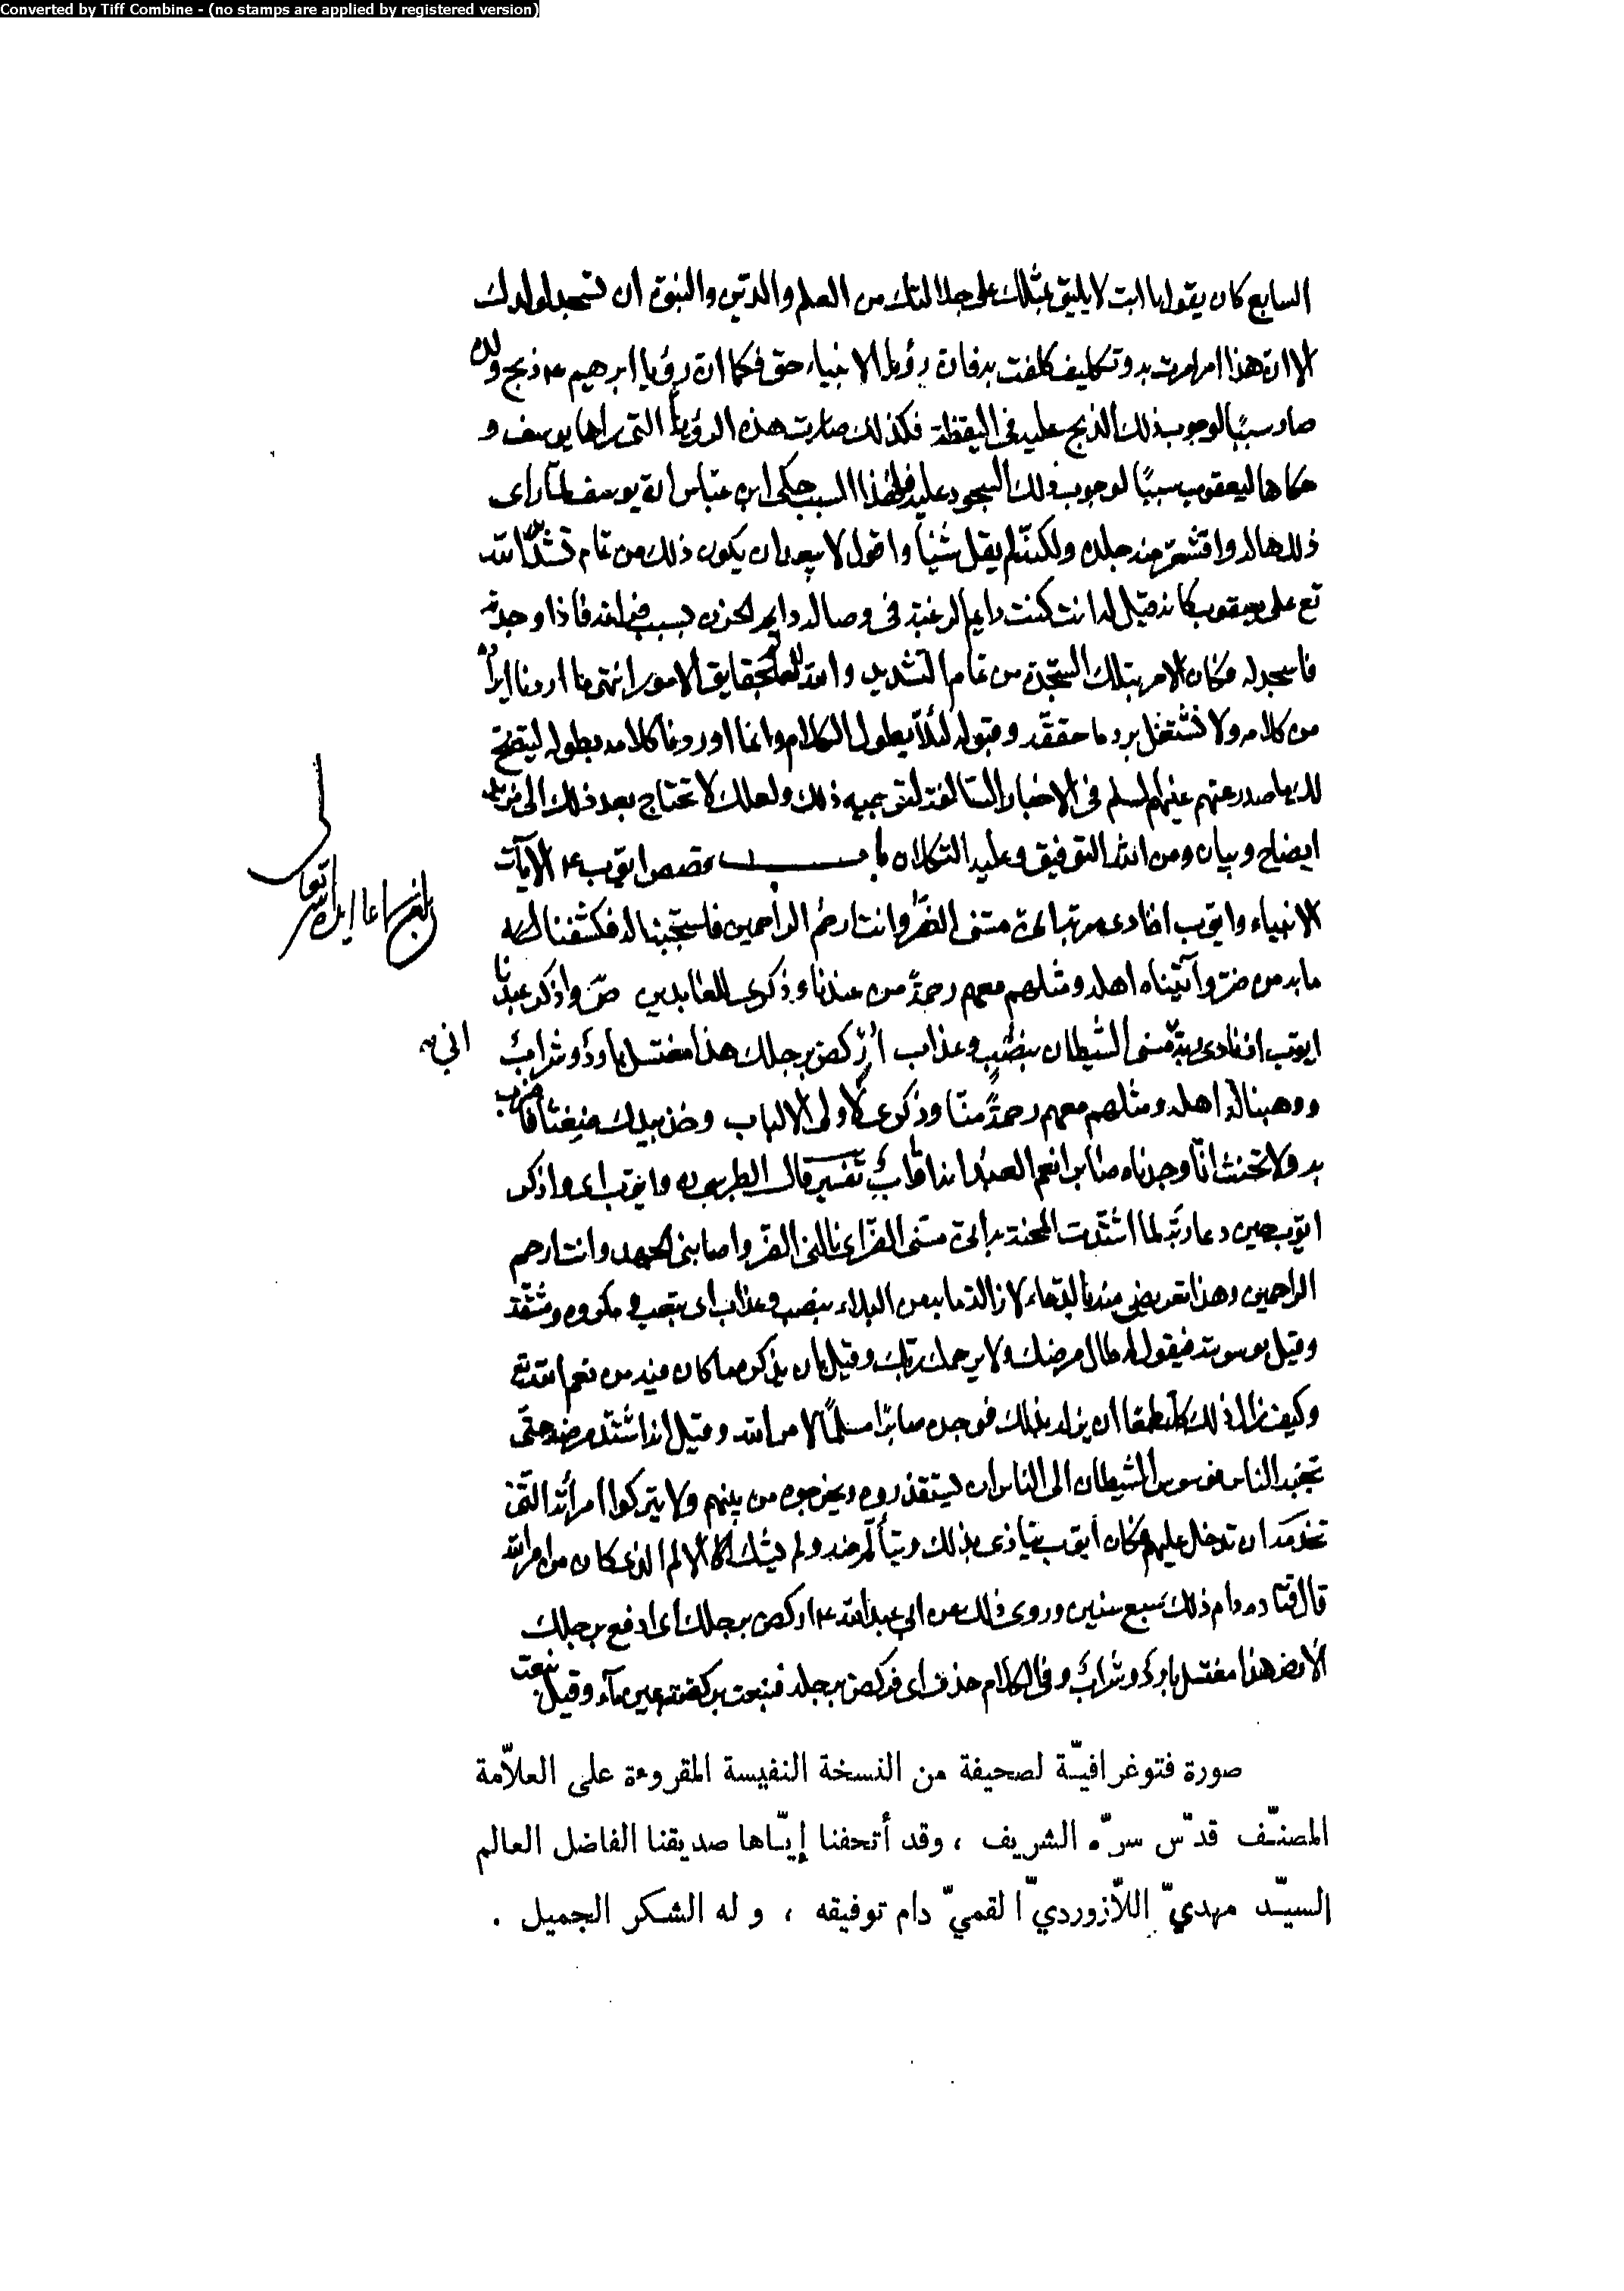 Converted by Tiff Combine - (no stamps are applied by registered version)
السابع كان يقول يا ابت لا يليق بمثلك على جلالتك من العلم والدين والنبوة ان تسجد لولدك
الا ان هذا امر امرت به وتكليف كلفت به فان رؤيا الانبياء حق فكما ان رؤيا ابرهيم ع ذبح ولده
صار سببا لوجوب ذلك الذبح عليه في اليقظة فكذلك صارت هذه الرؤيا التي راها يوسف و
حكاها ليعقوب سببًا لوجوب ذلك السجود عليه فلهذا السبب حكى ابن عباس ان يوسف لما راى
ذلك هاله واقشعر منه جلده ولكنه لم يقل شيئا واقول لا يبعد ان يكون ذلك من تمام تشديد الله
تع على يعقوب كانه قيل له انت كنت دايم الرغبة في وصاله دايم الحزن بسبب فراقه فاذا وجدته
فاسجد له فكان الامر بتلك السجدة من تمام التشديد والله العالم بحقايق الامور انتهى ما اردنا ايراده
من كلامه ولا نشتغل برد ما حققه وقبوله لئلا يطول الكلام وانما اوردنا كلامه بطوله ليتضح
لك ما صدر عنهم عليهم السلم في الاخبار السالفة لتوجيه ذلك ولعلك لا تحتاج بعد ذلك الى مزيد
ايضاح وبيان ومن الله التوفيق وعليه التكلان باب قصص ايوب ع الآيات
الانبياء وايوب اذ نادى ربه انى مسنى الضر وانت ارحم الراحمين فاستجبنا له فكشفنا
ما به من ضر وآتيناه اهله ومثلهم معهم رحمةً من عندنا وذكرى للعابدين ص واذكر عبدنا
ايوب اذ نادى ربه مسنى الشيطان بنصب وعذاب أركض برجلك هذا مغتسل بارد وشراب
انى
ووهبنا له اهله ومثلهم معهم رحمةً منّا وذكرى لأولى الالباب وخذ بيدك ضغثا فاضرب
به ولا تحنث انّا وجدناه صابرا نعم العبد انه اوّاب تفسير قال الطبرسى ره وايوب اى واذكر
ايوب حين دعا ربّه لما اشتدّت المحنة به انى مسنى الضر اى نالنى الضر واصابنى الجهد وانت ارحم
الراحمين وهذا تعريض منه بالدعاء لازالة ما به من البلاء بنصب وعذاب اى بتعب و مكروه ومشقة
وقيل بوسوسته فيقول له طال مرضك ولا يرحمك ربك وقيل بان يذكره ما كان فيه من نعم الله تع
وكيف زال ذلك كله طمعا ان يزله بذلك فوجده صابرًا مسلمًا لامر الله وقيل انه اشتدّ مرضه حتى
تجنبه الناس فوسوس الشيطان الى الناس ان يستقذروه ويخرجوه من بينهم ولا يتركوا امرأته التى
تخدمه ان تدخل عليهم فكان أيوب يتاذى بذلك ويتألم منه ولم يشك الألم الذى كان من امر الله
قال قتاده دام ذلك سبع سنين وروى ذلك عن ابى عبدالله ع اركض برجلك اى ادفع برجلك
الأرض هذا مغتسل باردٌ وشرابٌ وفى الكلام حذف اى فركض برجله فنبعت بركضته عين ماء وقيل نبعت
صورة فتوغرافيّة لصحيفة من النسخة النفيسة المقروءة على العلاّمة
المصنّف قدّس سرّه الشريف ، وقد أتحفنا إيّاها صديقنا الفاضل العالم
السيّد مهديّ اللاّزورديّ القميّ دام توفيقه ، و له الشكر الجميل .